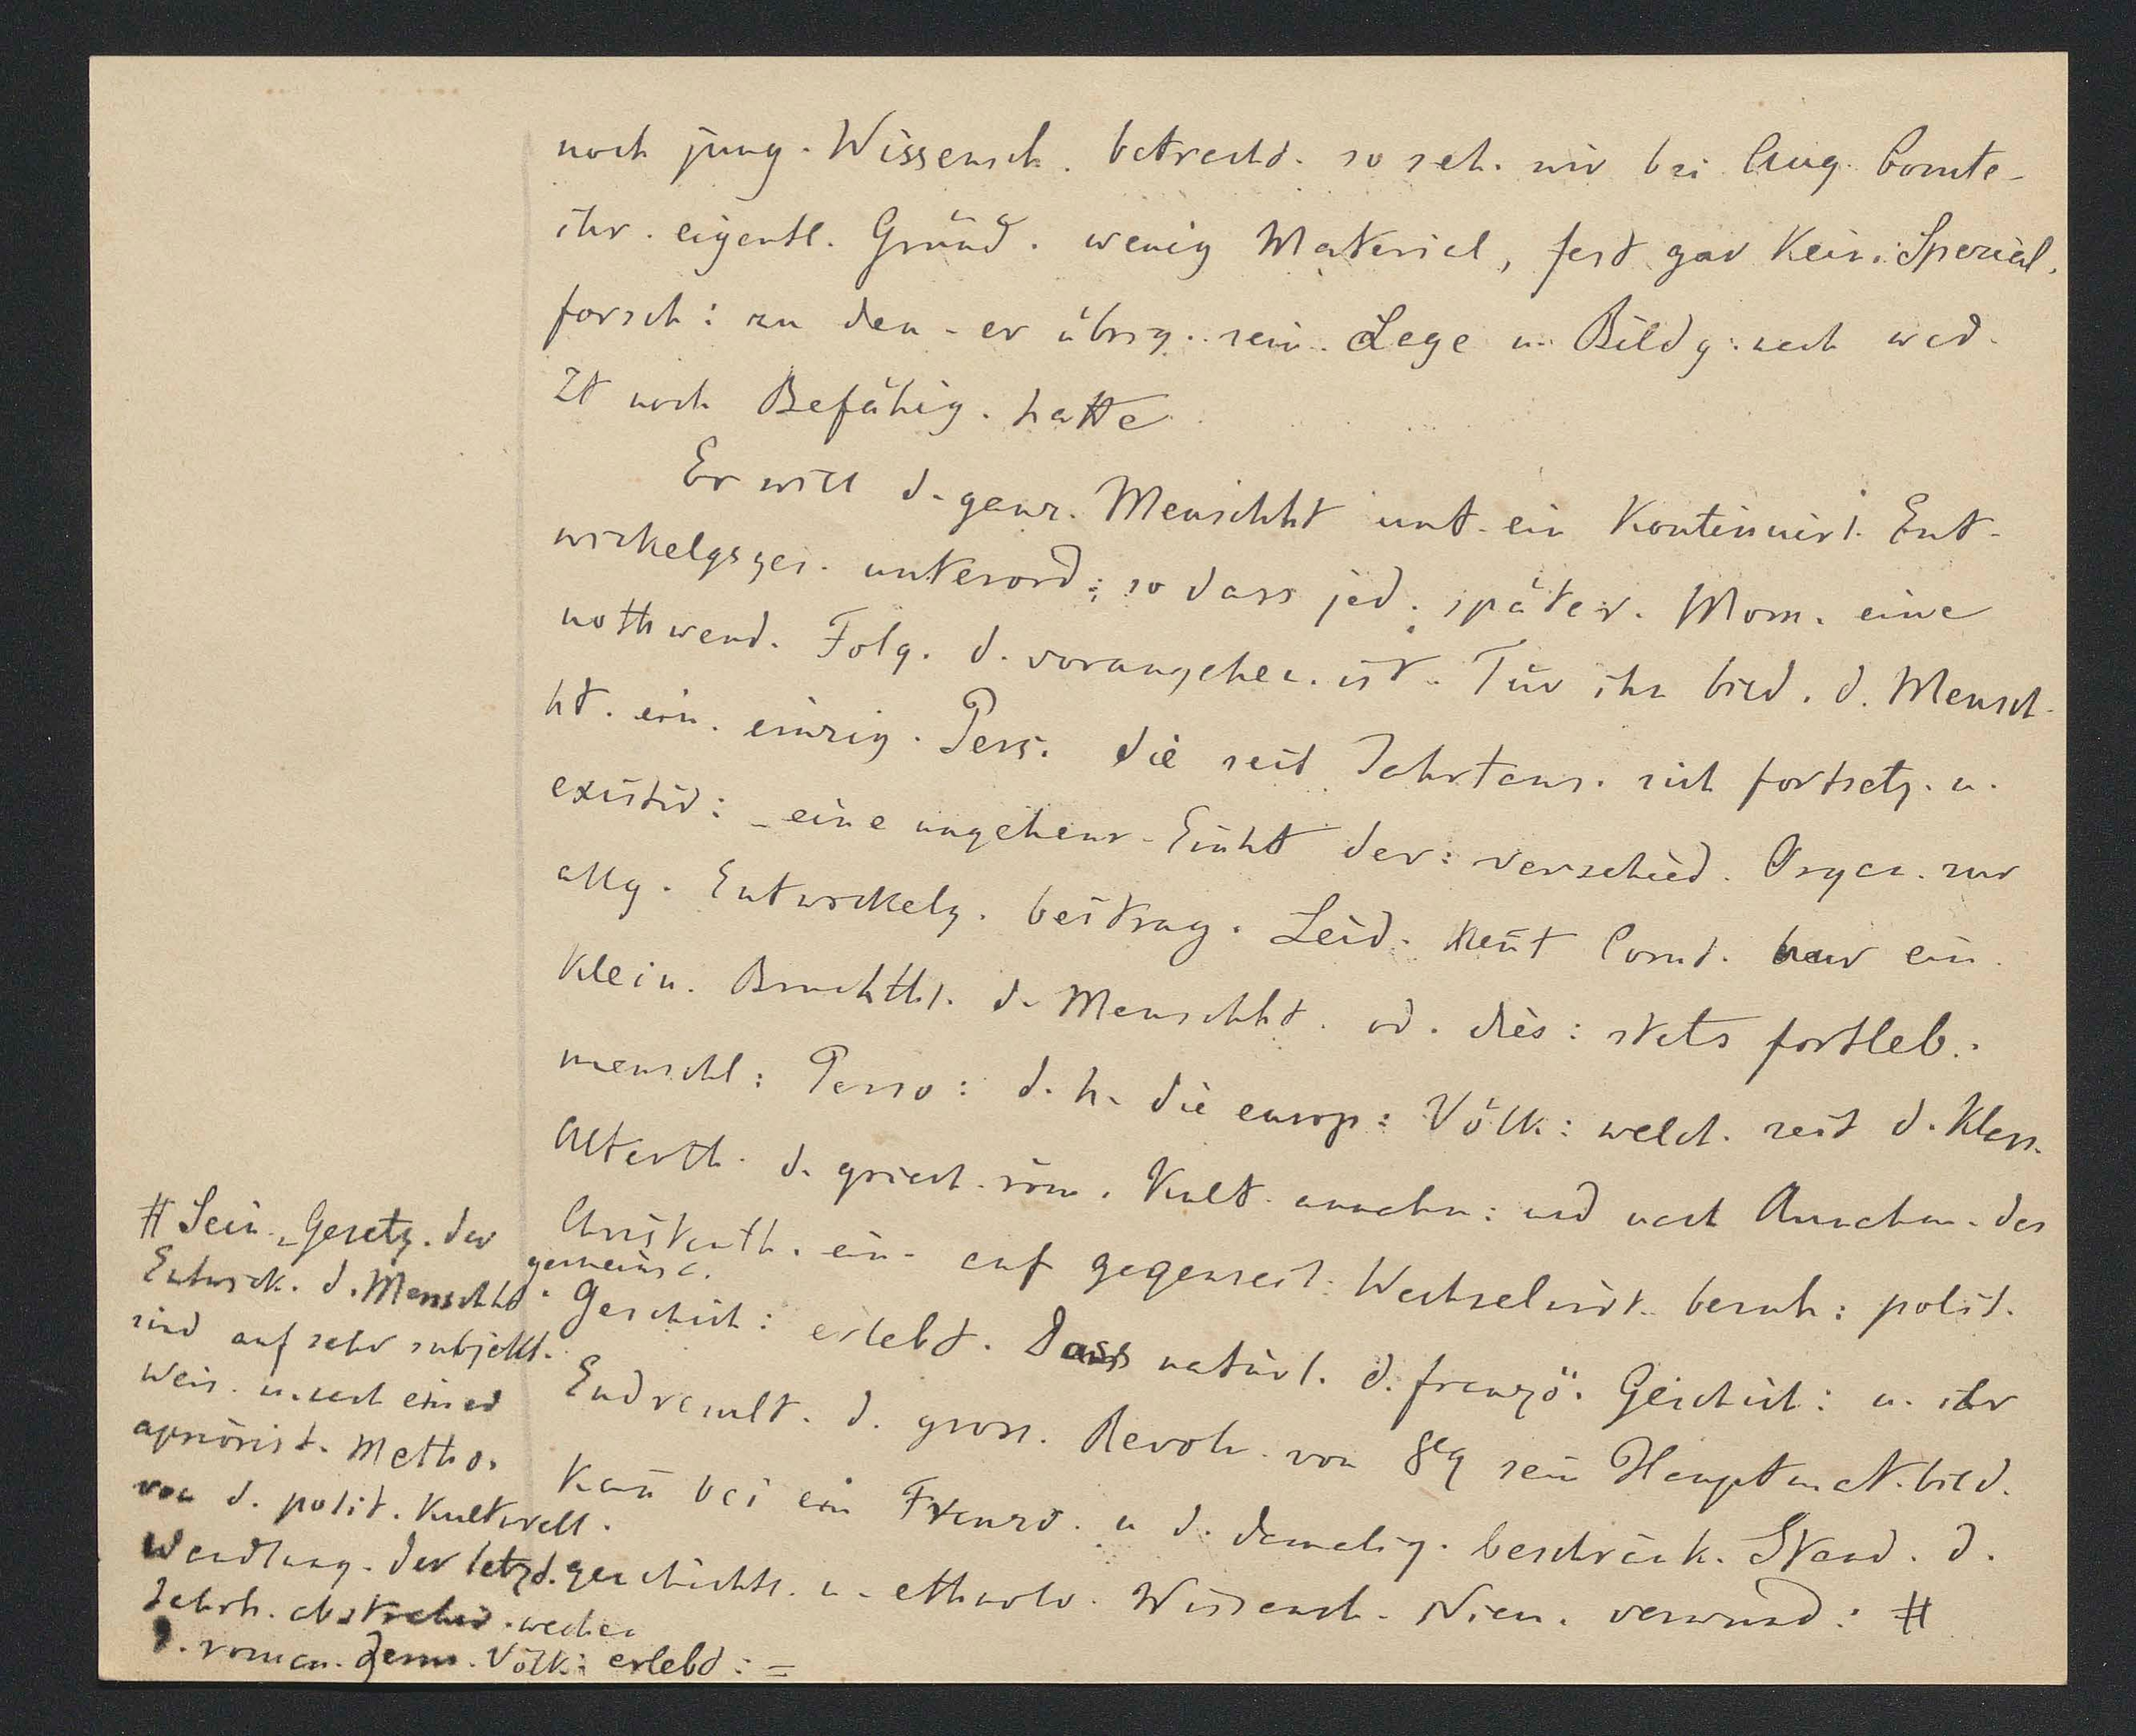 noch jung. Wissensch. betrachd. so seh. wir bei Aug. Comte -
ihr. eigentl. Gründ. wenig Material, fast gar kein. Spezial.
forsch: zu den - er übrig. sein. Lage u. Bildg: nach wed.
Zt noch Befähig. hatte
Er will d. ganz. Menschht unt. ein kontinuirl. Ent-
wickelgsges. unterord: so dass jed. später. Mom. eine
nothwend. Folg. d. vorangehen. ist. Für ihn bild. d. Mensch-
ht. ein. einzig. Pers. die seit Jahrtaus. sich fortsetz. u.
existir: - eine ungeheur. Einht der: verschied. Organ. zur
allg. Entwickelg. beitrag. Leid. kent Comt. nur ein.
klein. Bruchthl. d. Menschht. od. dies: stets fortleb.
menschl: Perso: d. h. die europ: Völk: welch. seit d. klass.
Alterth. d. griech. röm. Kult. annahm: und nach Annahm. des
Christenth. ein. auf gegenseit. Wechselwirk. beruh: polit.
gemeins.
Geschich: erlebt. Dass natürl. d. französ. Geschich: u. ihr
Endresult. d. gross. Revol. von 89 sein Hauptmat. bild.
kan bei ein Franzo. u d. damalig. beschränk. Stand. d.
geschichtl. u. ethnolo. Wissensch. Niem. verwund: #
# Sein. Gesetz. der
Entwick. d. Menschht.
sind auf sehr subjekt.
Weis. u. nach einer
apriorist. Metho.
von d. polit. kulturell.
Wandlung. der letzt.
Jahrh. abstrahir. welche
d. roman. germ. Völk: erlebd: =